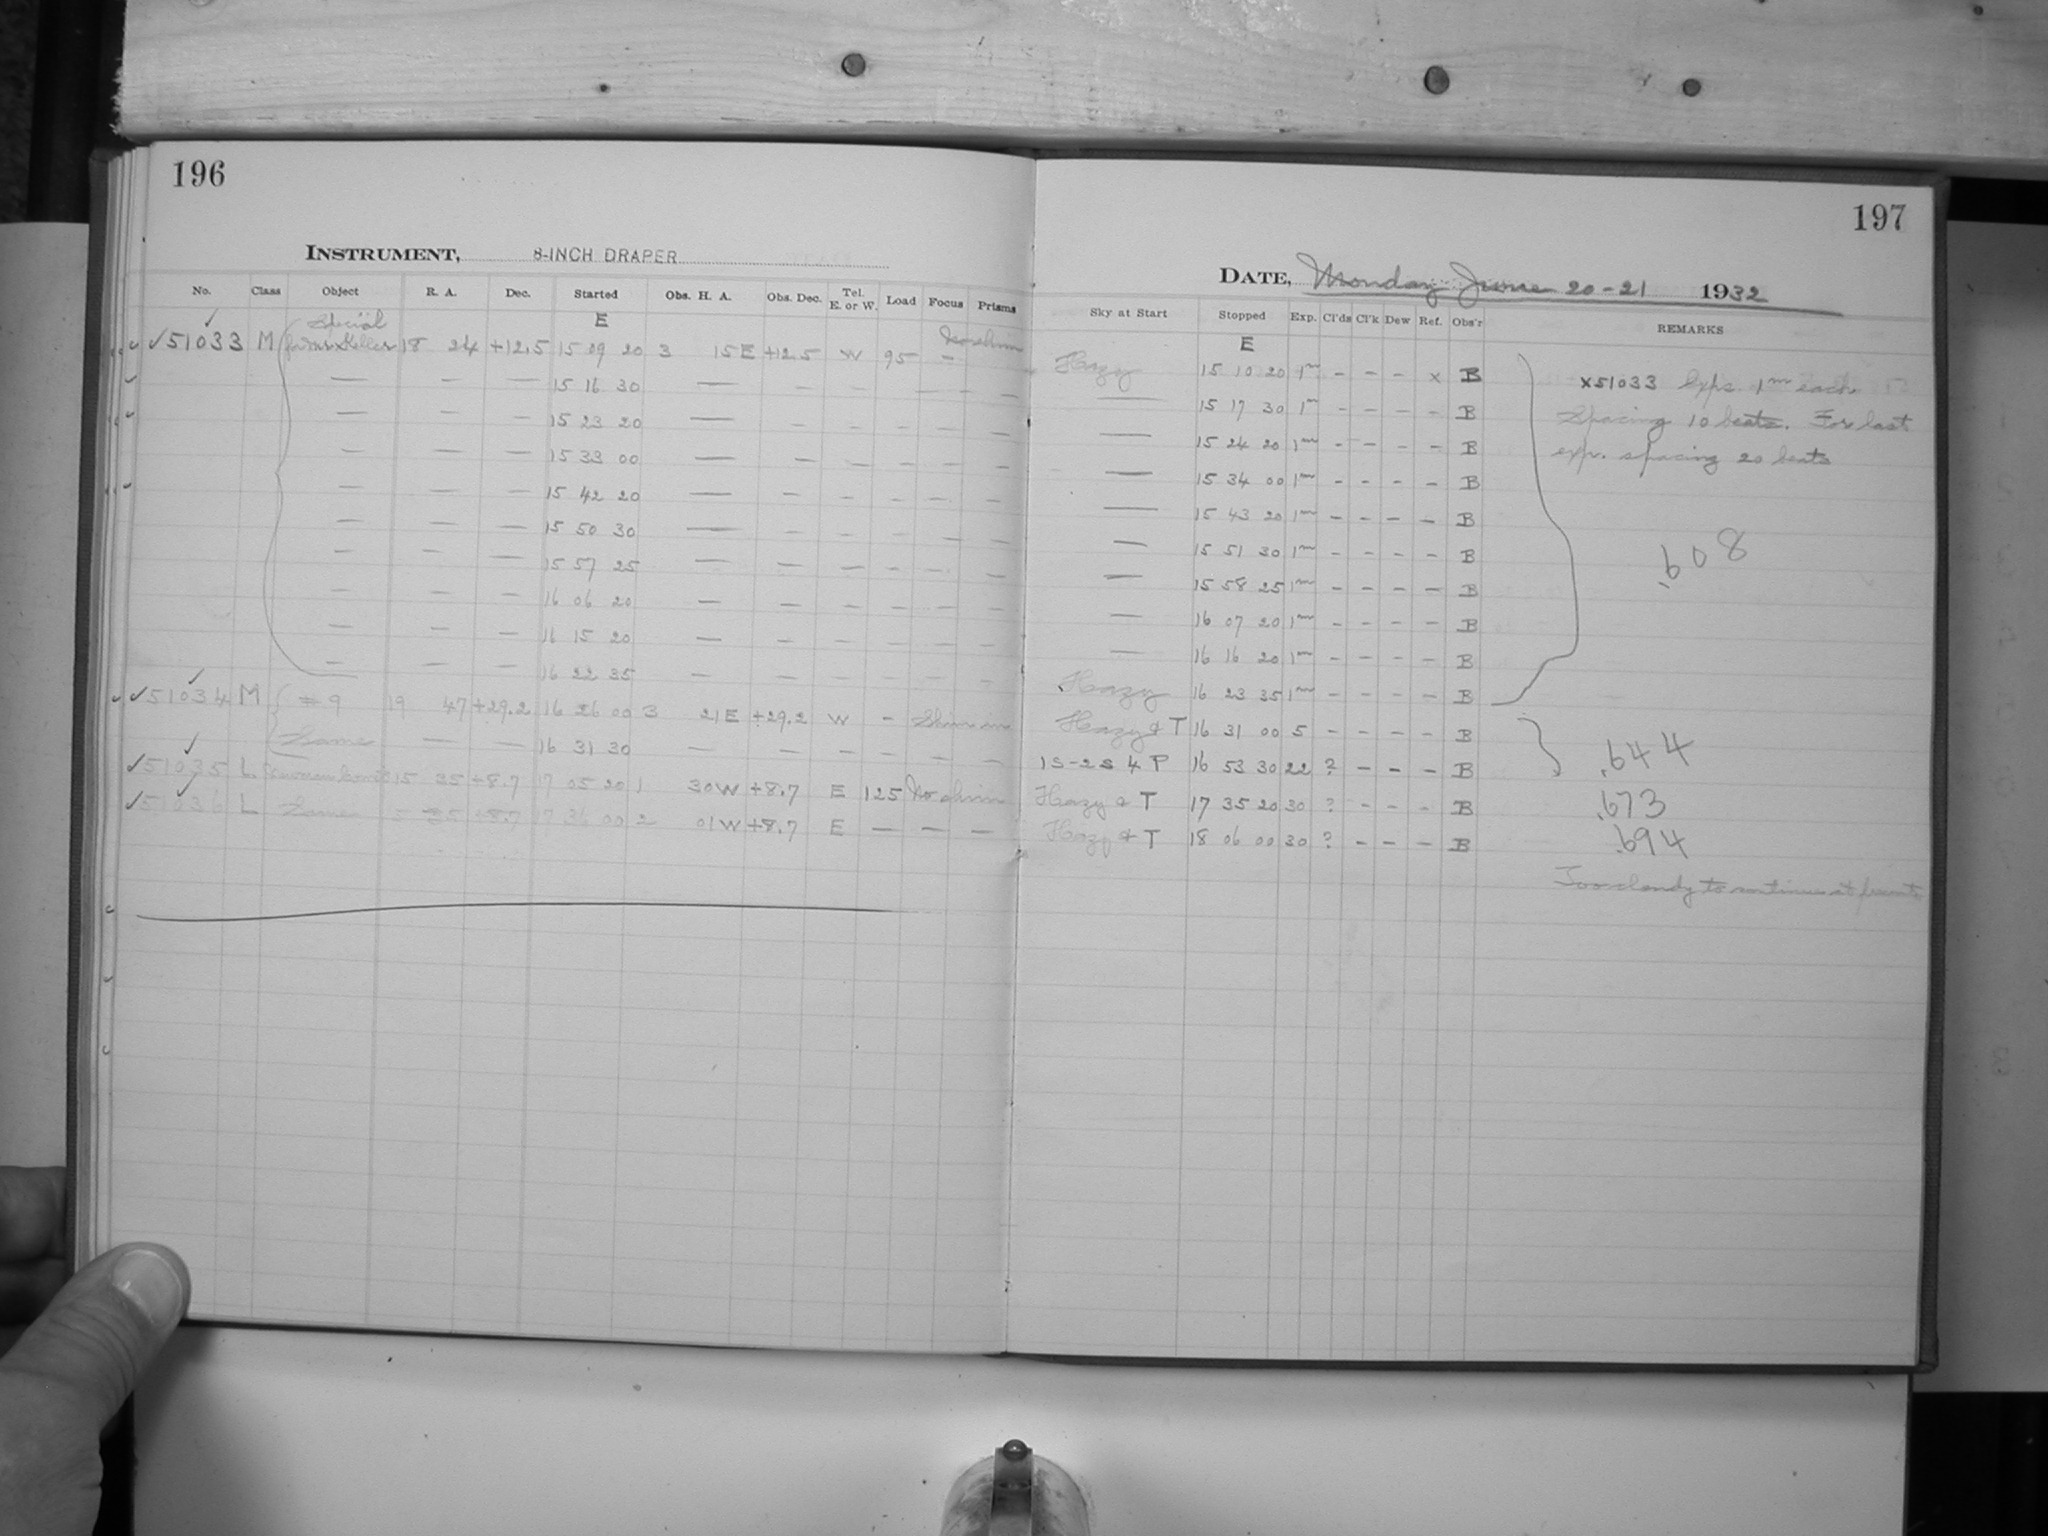 196
INSTRUMENT, 8-INCH DRAPER
No. Class Object R. A. Dec. Started Obs. H. A. Obs. Dec. Tel. E. or W. Load Focus Prisms
E
✓51033 M Special 18 24 +12.5 15 09 20 3 15 E +12.5 W 95 – No shim
— – — 15 16 30 — – – – – – –
— – — 15 23 20 — – – – – – –
— – — 15 33 00 — – – – – – –
— – — 15 42 20 — – – – – – –
— – — 15 50 30 — – – – – – –
— – — 15 57 25 — – – – – – –
— – — 16 06 20 — – – – – – –
— – — 16 15 20 — – – – – – –
— – — 16 22 35 — – – – – – –
✓51034 M # 9 19 47 +29.2 16 26 00 3 21 E +29.2 W – Shim in
Same — — 16 31 30 — – – – – –
✓51035 L 15 35 +8.7 17 05 20 1 30 W +8.7 E 125 No shim
✓51036 L Same 15 35 +8.7 17 36 00 2 01 W +8.7 E — — —
197
DATE, Monday June 20-21 1932
Sky at Start Stopped Exp. Cl'ds Cl'k Dew Ref. Obs'r REMARKS
E
Hazy 15 10 20 1m – – – x B x51033 Exps. 1m each
— 15 17 30 1m – – – – B Spacing 10 beats. For last
— 15 24 20 1m – – – – B exp. spacing 20 beats
— 15 34 00 1m – – – – B
— 15 43 20 1m – – – – B
— 15 51 30 1m – – – – B .608
— 15 58 25 1m – – – – B
— 16 07 20 1m – – – – B
— 16 16 20 1m – – – – B
Hazy 16 23 35 1m – – – – B
Hazy & T 16 31 00 5 – – – – B
1S-2S 4 P 16 53 30 22 ? – – – B .644
Hazy & T 17 35 20 30 ? – – – B .673
Hazy & T 18 06 00 30 ? – – – B .694
Too cloudy to continue at present